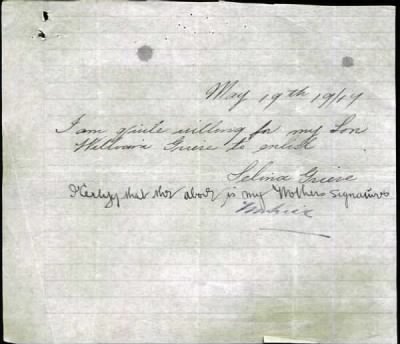 May 19th 19/17
I am quite willing for my Son
William Griese to enlist
Selina Griese
I Certify that the above is my Mothers Signature